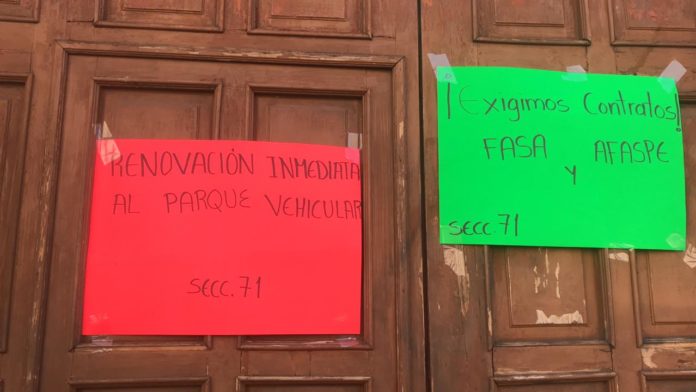 RENOVACIÓN INMEDIATA
AL PARQUE VEHICULAR
SECC. 71
¡Exigimos Contratos!
FASA Y AFASPE
SECC. 71